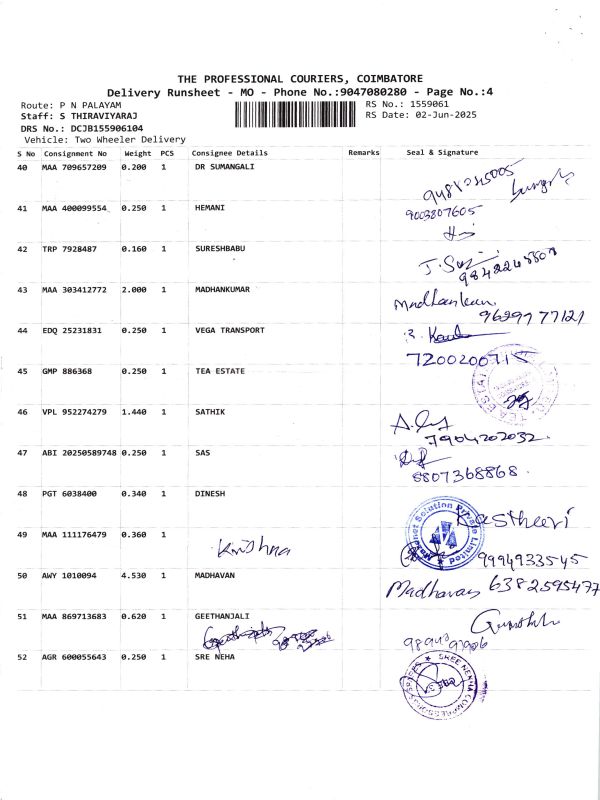 THE PROFESSIONAL COURIERS, COIMBATORE
Delivery Runsheet - MO - Phone No.:9047080280 - Page No.:4
Route: P N PALAYAM RS No.: 1559061
Staff: S THIRAVIYARAJ RS Date: 02-Jun-2025
DRS No.: DCJB155906104
Vehicle: Two Wheeler Delivery
S No Consignment No Weight PCS Consignee Details Remarks Seal & Signature
40 MAA 709657209 0.200 1 DR SUMANGALI
41 MAA 400099554 0.250 1 HEMANI 9003807605
42 TRP 7928487 0.160 1 SURESHBABU
43 MAA 303412772 2.000 1 MADHANKUMAR
9629777121
44 EDQ 25231831 0.250 1 VEGA TRANSPORT
45 GMP 886368 0.250 1 TEA ESTATE
46 VPL 952274279 1.440 1 SATHIK
7904202032
47 ABI 20250589748 0.250 1 SAS
8807368868
48 PGT 6038400 0.340 1 DINESH
49 MAA 111176479 0.360 1
Krishna
9994933545
50 AWY 1010094 4.530 1 MADHAVAN Madhavan 6382595477
51 MAA 869713683 0.620 1 GEETHANJALI
52 AGR 600055643 0.250 1 SRE NEHA